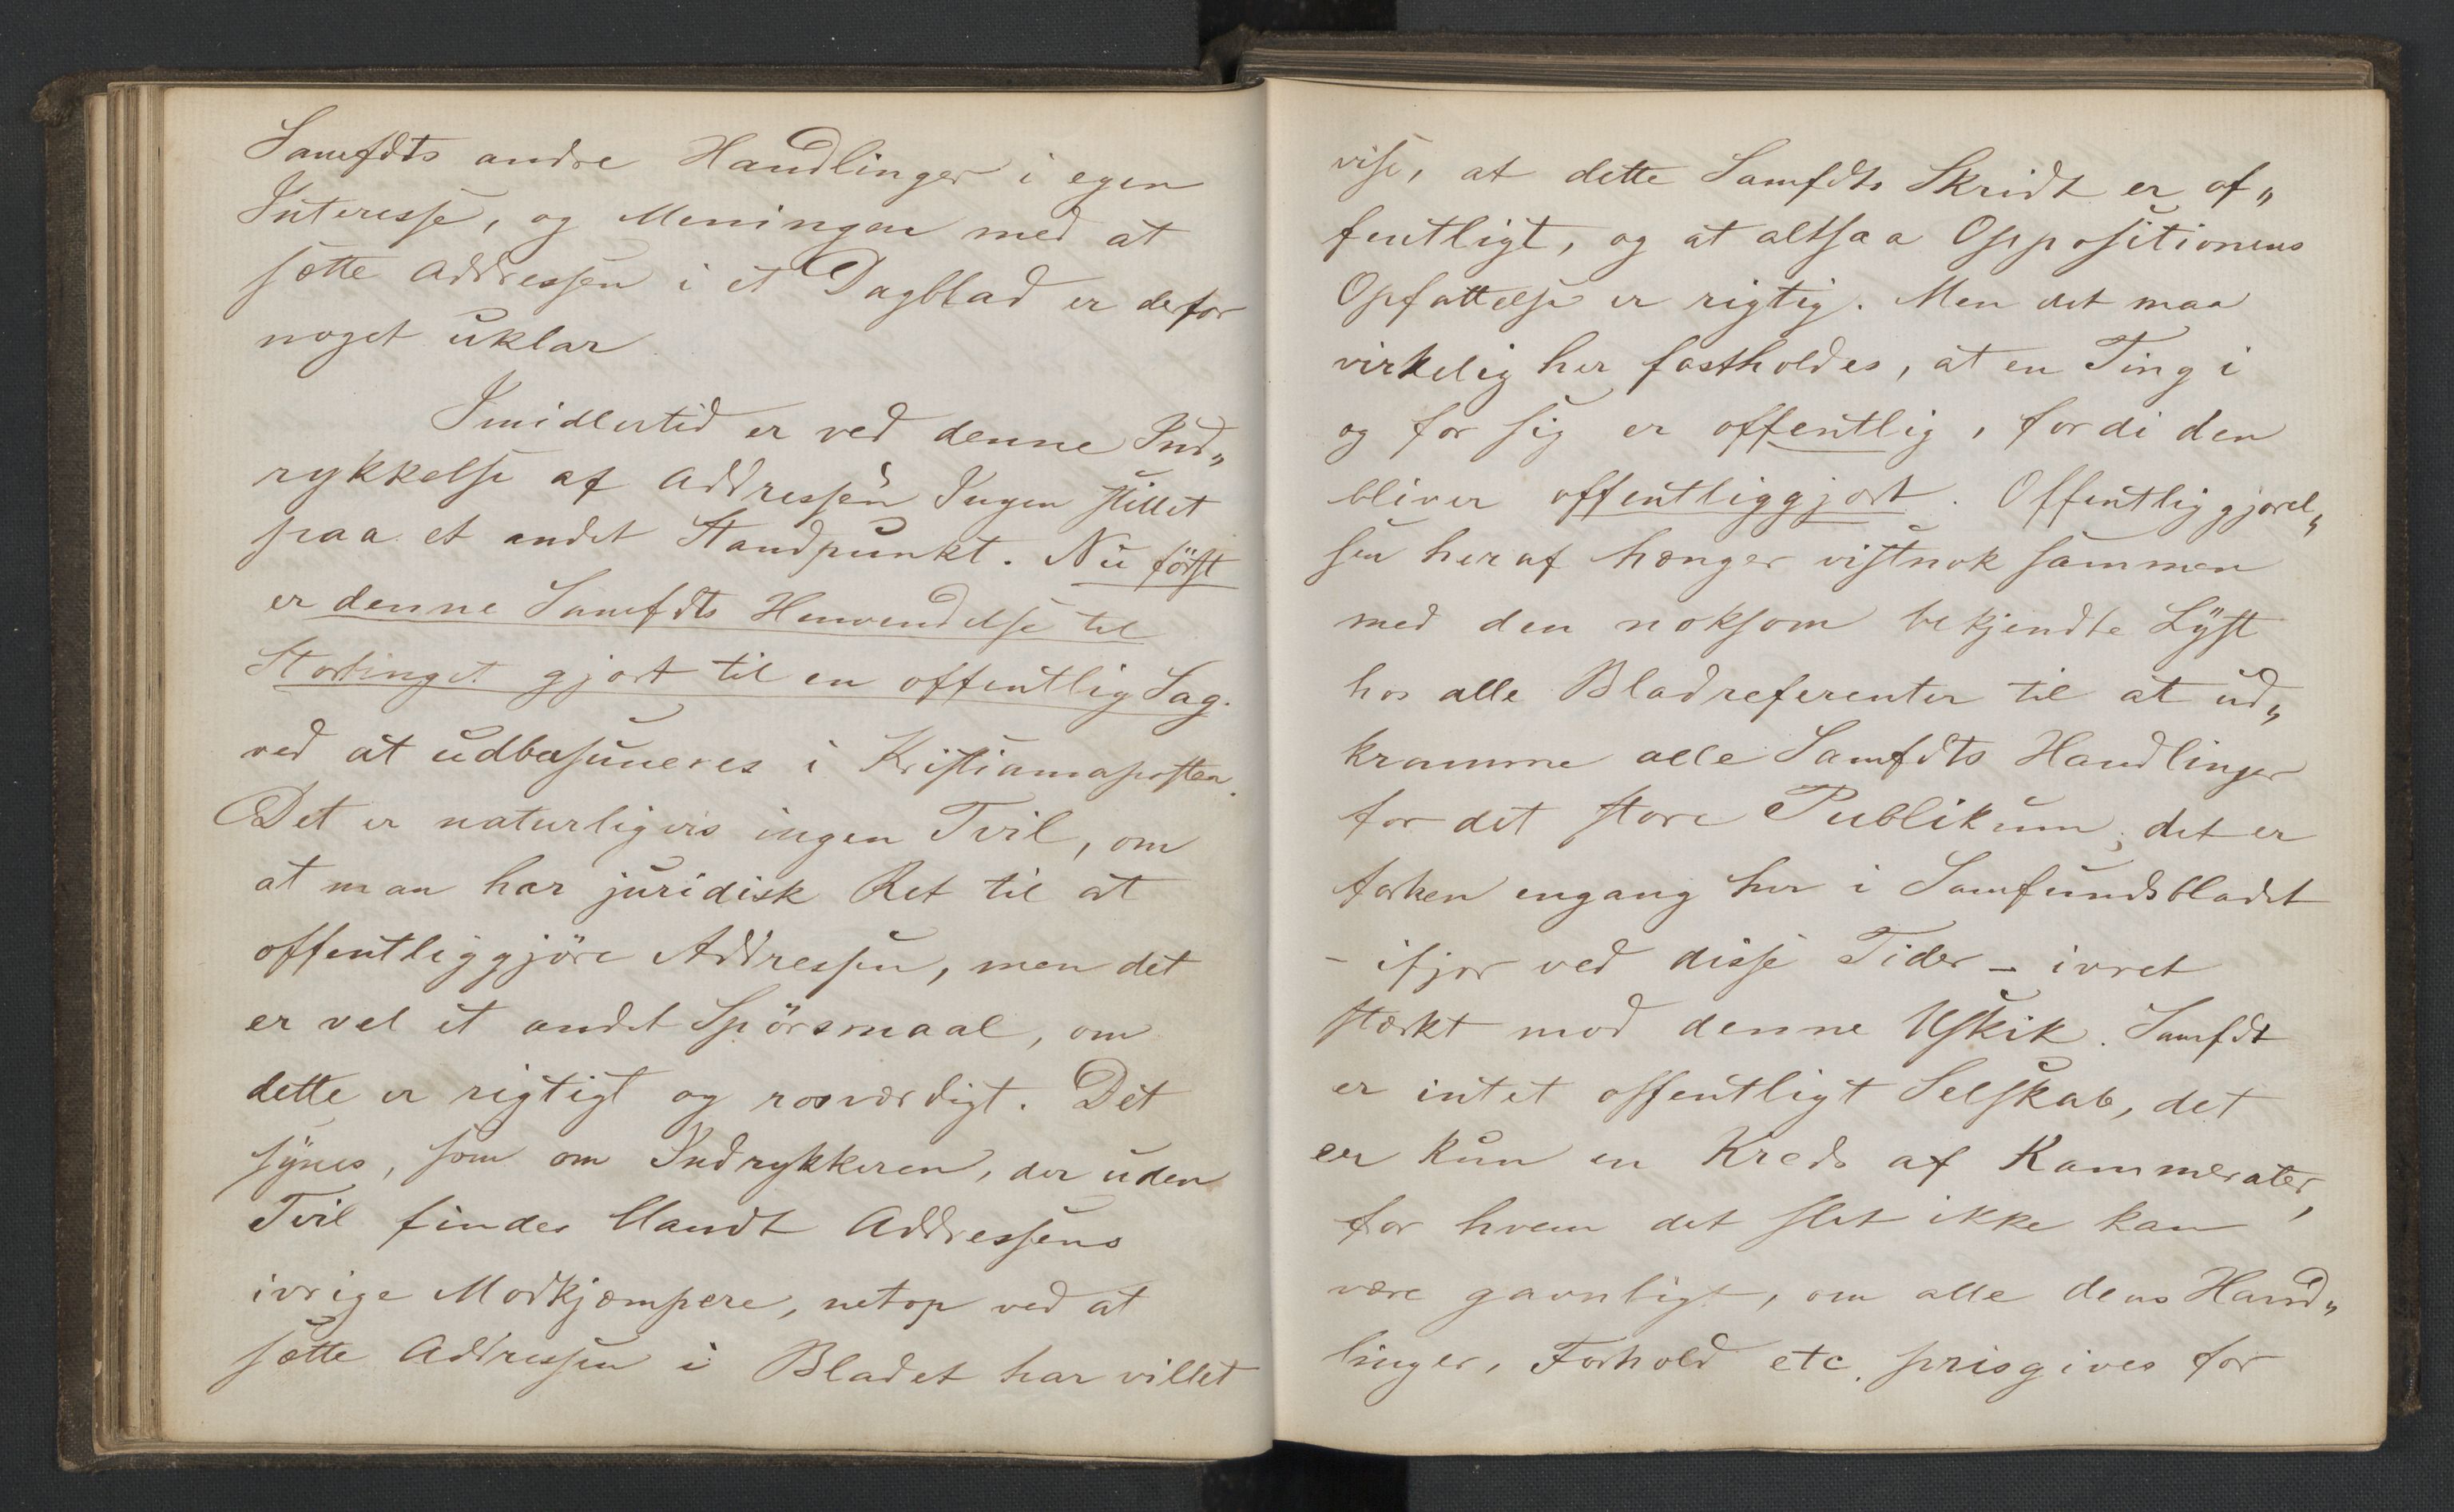 Samfdts andre Handlinger i egen
Interesse, og Meningen med at
sætte Addressen i et Dagblad er derfor
noget uklar
Imidlertid er ved denne Ind„
rykkelse af Addressen Ingen stillet
paa et andet Standpunkt. Nu först
er denne Samfdts Henvendelse til
Stortinget gjort til en offentlig Sag.
ved at udbasuneres i Kristianiaposten.
Det er naturligvis ingen Tvil, om
at man har juridisk Ret til at
offentliggjöre Addressen, men det
er vel et andet Spörsmaal, om
dette er rigtigt og rosværdigt. Det
synes, som om Indrykkeren, der uden
Tvil findes blandt Addressens
ivrige Modkjæmpere, netop ved at
sætte Addressen i Bladet har villet
vise, at dette Samfdts Skridt er of„
fentligt, og at altsaa Oppositionens
Opfattelse er rigtig. Men det maa
virkelig her fastholdes, at en Ting i
og for sig er offentlig, fordi den
bliver offentliggjort. Offentliggjörel„
sen heraf hænger vistnok sammen
med den noksom bekjendte Lyst
hos alle Bladreferenter til at ud„
kramme alle Samfdts Handlinger
for det store Publikum; det er
forhen engang her i Samfundsbladet
- ifjor ved disse Tider - ivret
stærkt mod denne Uskik. Samfdt
er intet offentligt Selskab, det
er kun en Kreds af Kammerater,
for hvem det slet ikke kan
være gavnligt, om alle dens Hand„
linger, Forhold etc. prisgives for